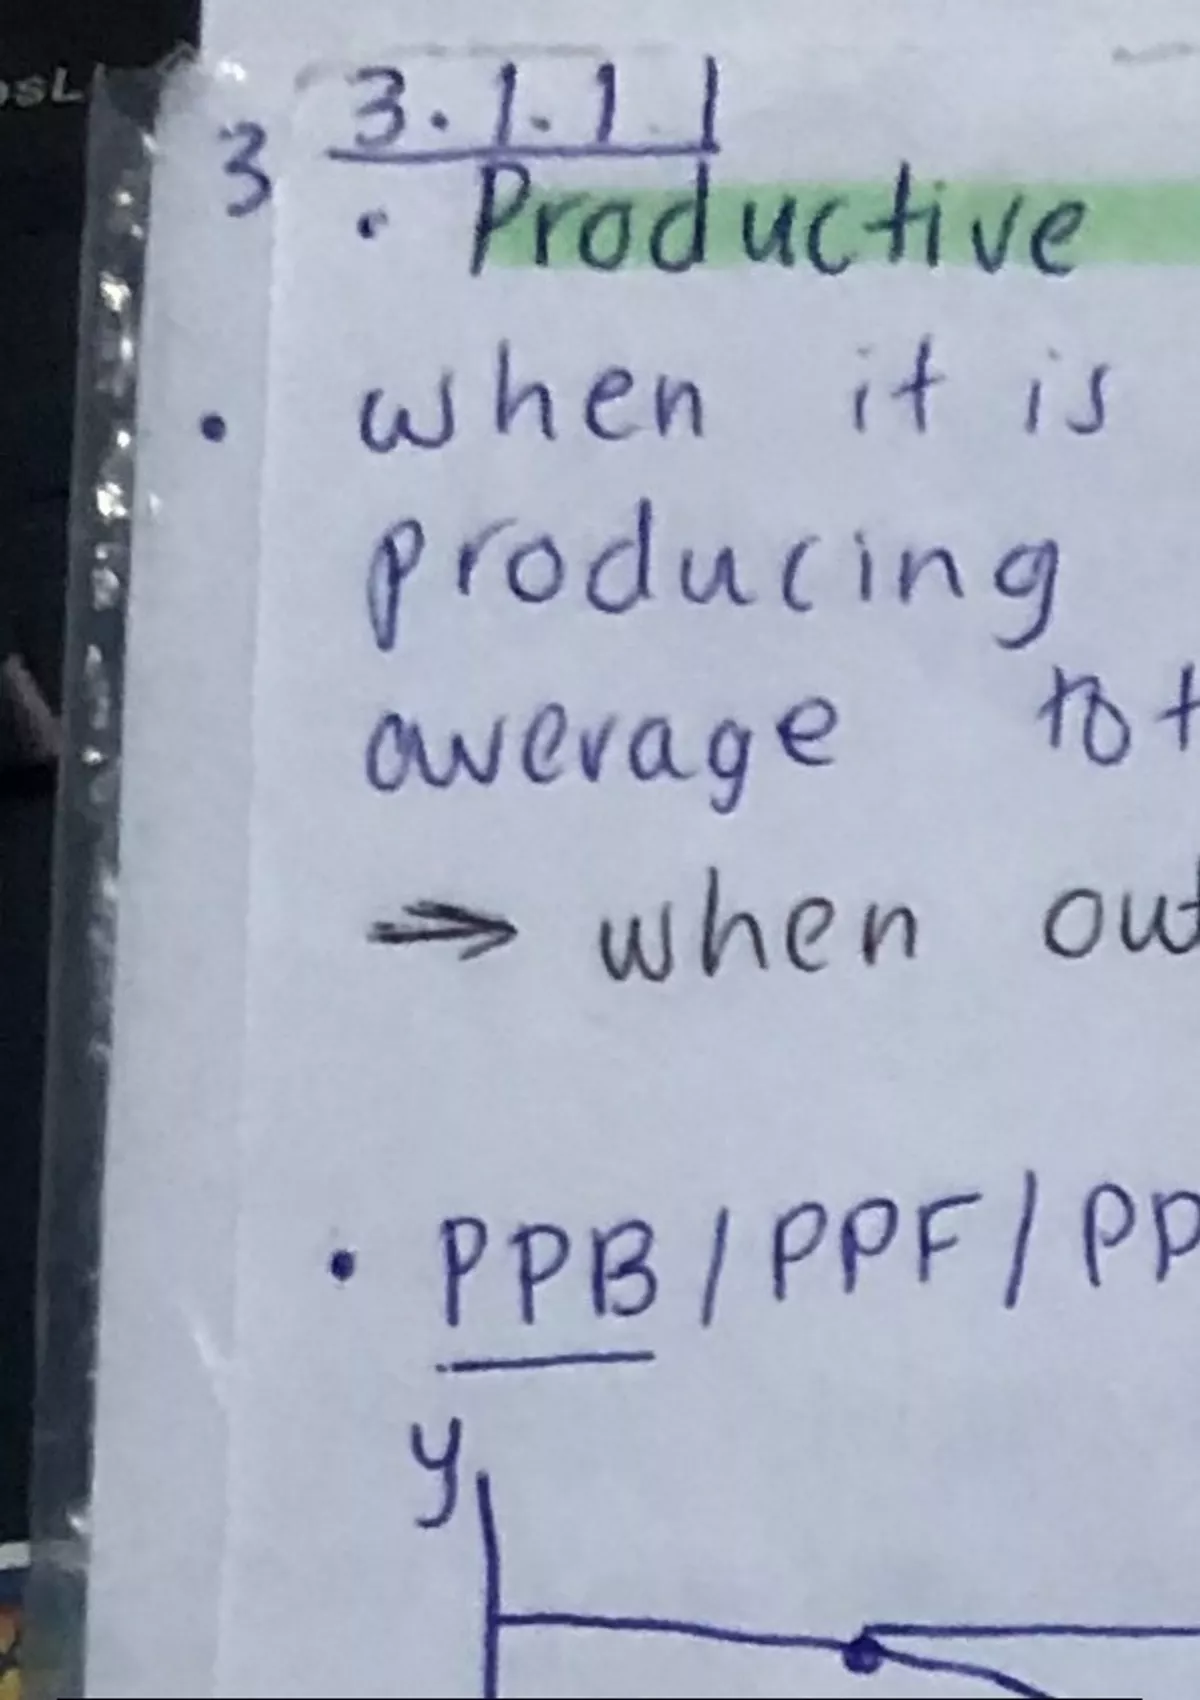 3.1.1.1
3
• Productive
• when it is
producing
average tot
⇒ when out
• PPB / PPF / PP
y